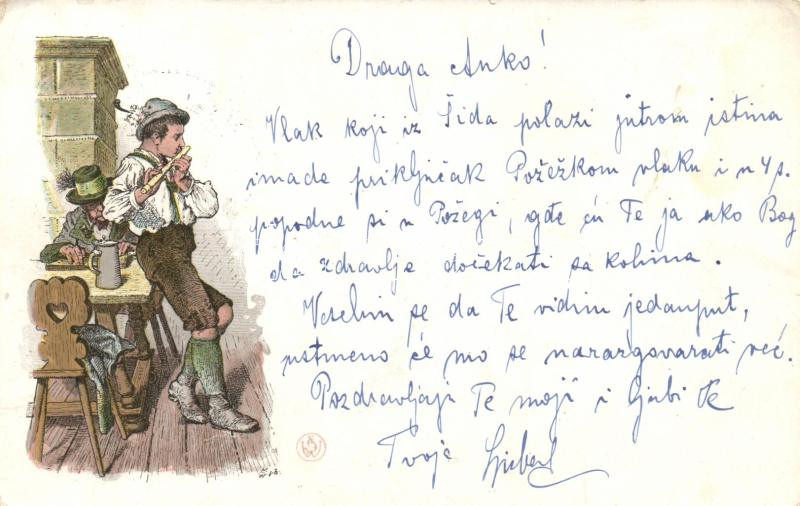 Draga Anko!
Vlak koji iz Šida polazi jutrom istina
imade priključak Požežkom vlaku i u 4 s.
popodne si u Požegi, gđe ću Te ja ako Bog
da zdravlje dočekati sa kolima.
Veselim se da Te vidim jedanput,
ustmeno će mo se narazgovarati već.
Pozdravljaji Te moji i ljubi Te
Tvoje